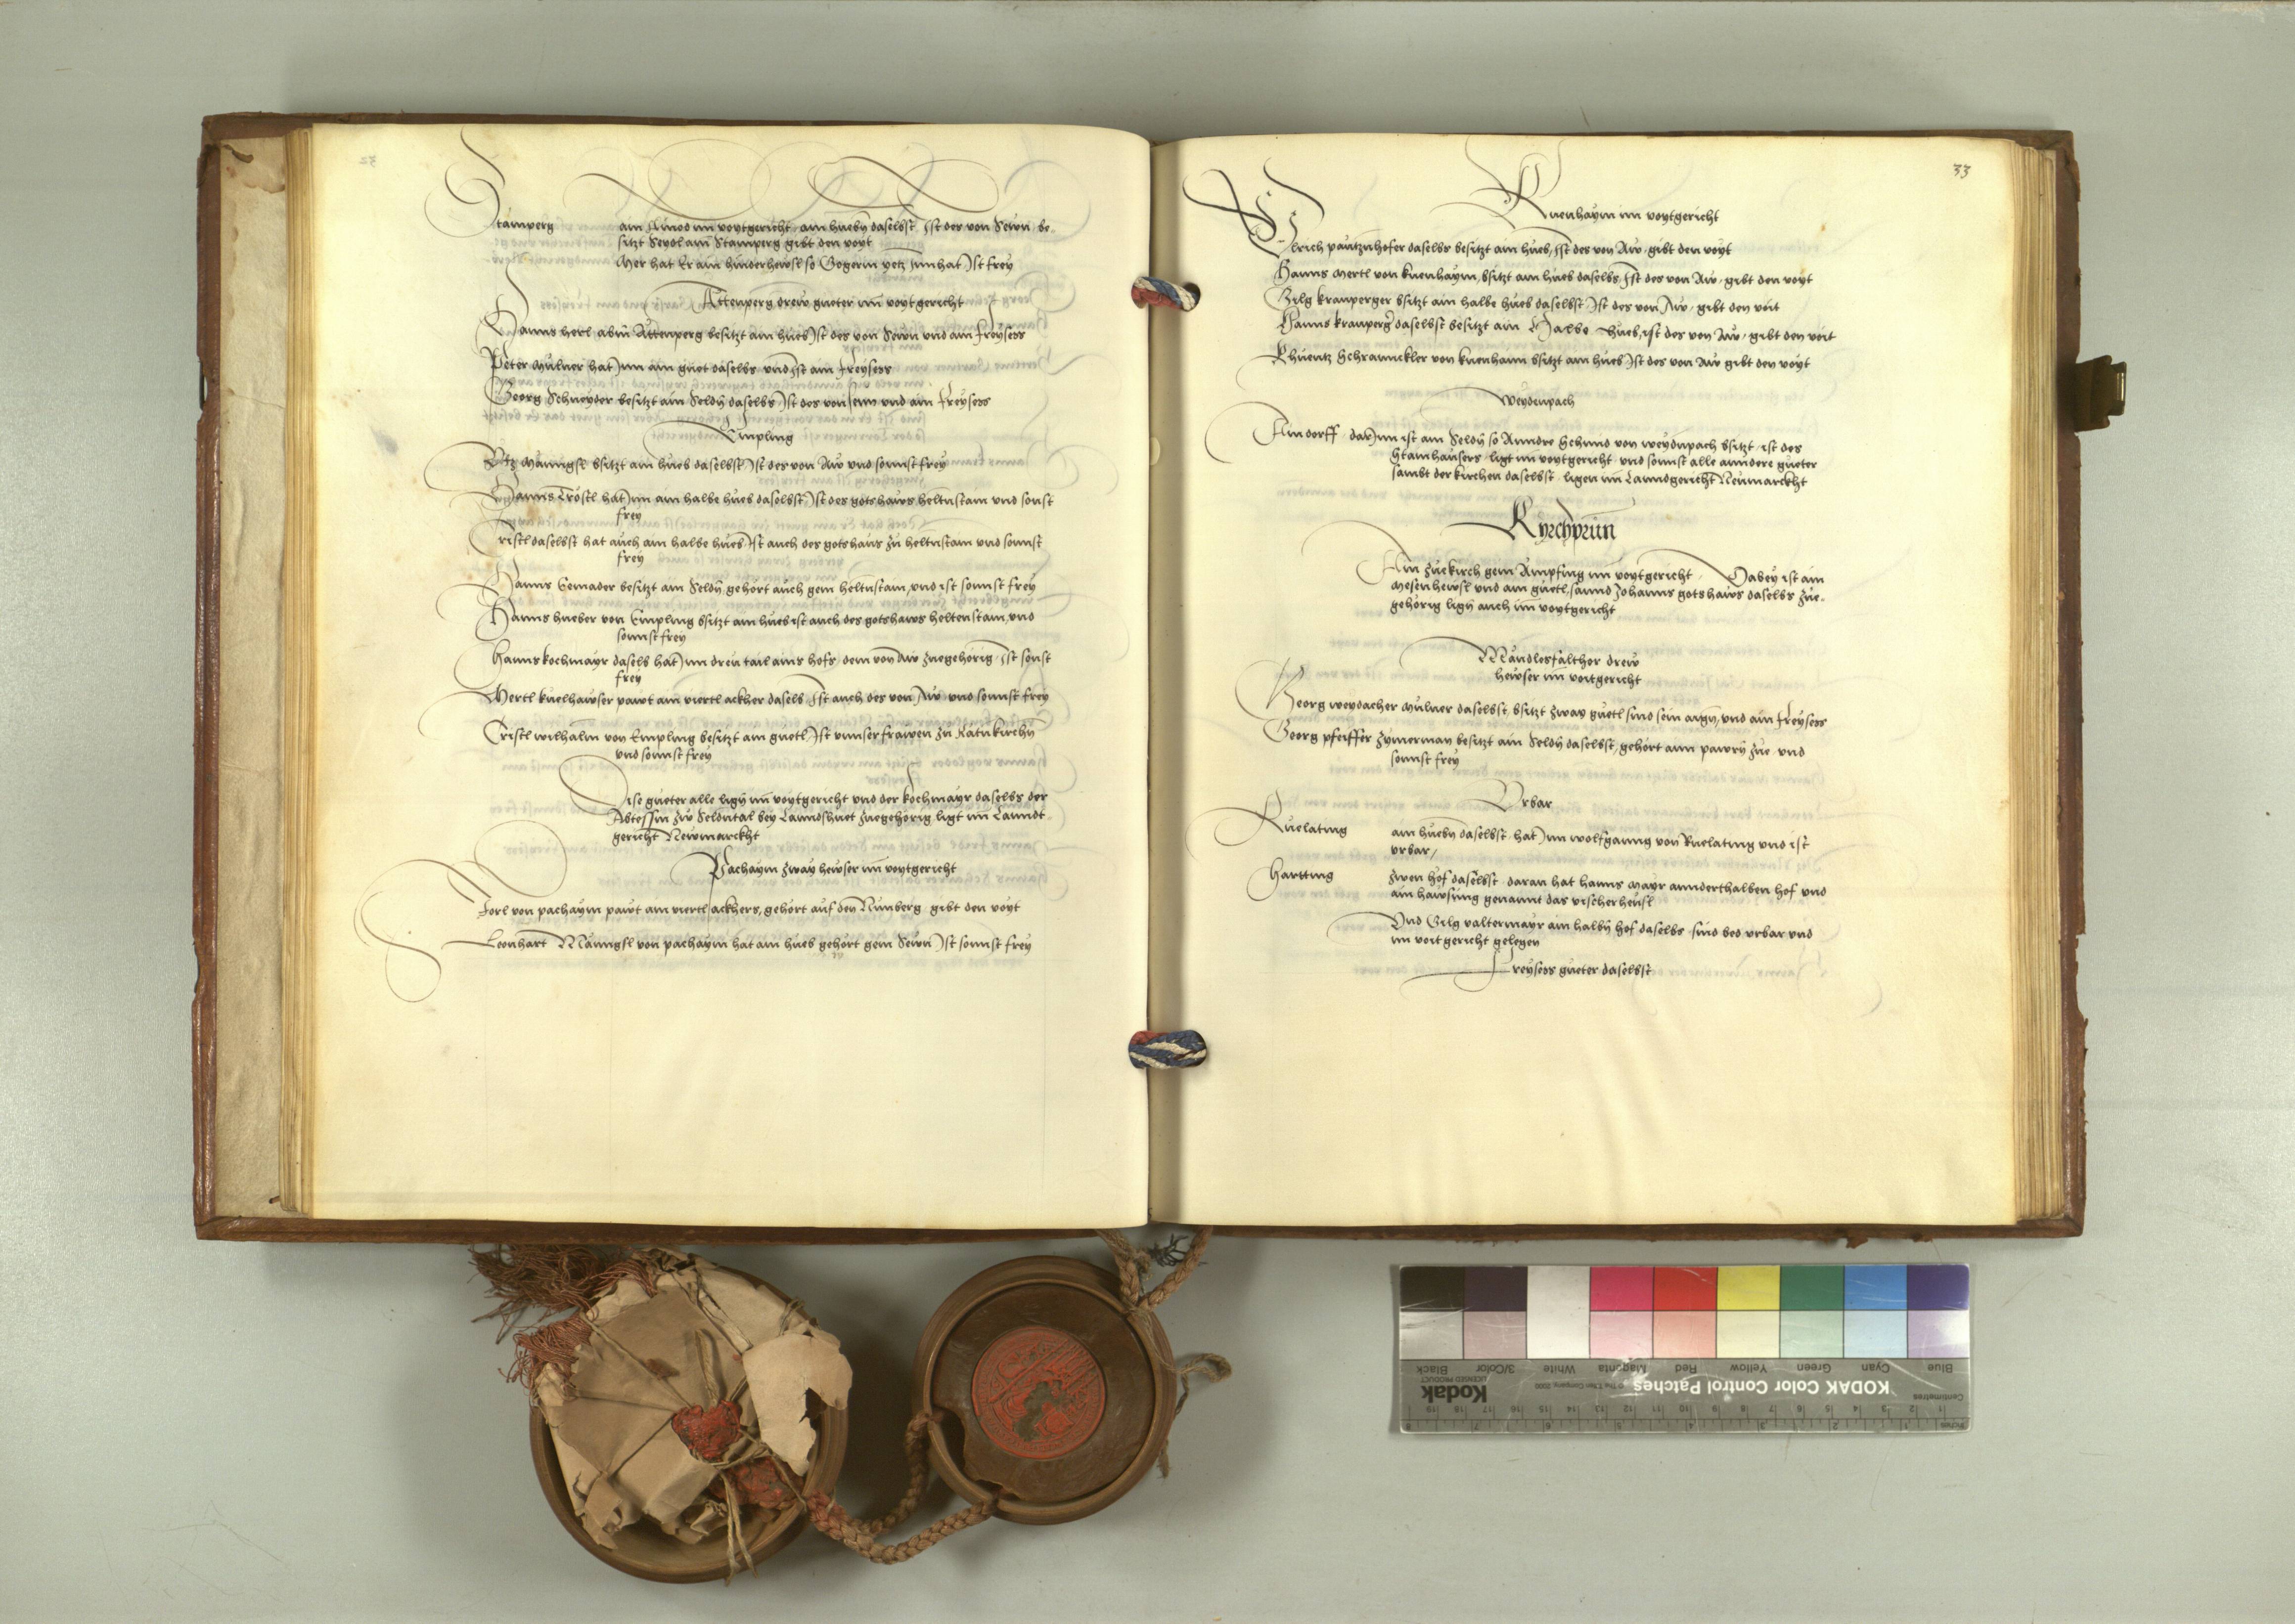 Stamperg ain Ainod im voytgericht ain huebn daselbst Ist der von Sewn be-
sitzt Seydl am Stamperg gibt den voyt
Mer hat Er ain hinderhewsl so Gogerin yetz Innhat Ist frey
Attenperg drew gueter im voytgericht
Hanns herl abm Attenperg besitzt ain hueb Ist des von Sewn und ain freysess
Peter Mulner hat Inn ain guet daselbs und Ist ain freysess
Georg Schneyder besitzt ain Seldn daselbs Ist des von senn und ain freysess
Empling
Utz Manngsl bsitzt ain hueb daselbst Ist des von Aw und sonnst frey
Hanns Tröstl hat Inn ain halbe hueb daselbst Ist des gotshaws heltnstain und sonst
frey
Cristl daselbst hat auch ain halbe hueb Ist auch des gotshaus zu heltnstain und sonnst
frey
Hanns Gemader besitzt ain Seldn gehört auch gein heltnstain, und ist sonnst frey
Hanns hueber von Empling bsitzt ain hueb ist auch des gotshaws heltenstain, und
sonnst frey
Hanns kochmayr daselb hat Inn dreu tail ains hofs, dem von Aw zuegehörig, Ist sonst
frey
Mertl kuelhawser pawt ain viertl ackher daselb Ist auch des von Aw und sonnst frey
Cristl wilhalm von Empling besitzt ain guetl Ist unnser frawen zu Ratnkirchn
und sonnst frey
Dise gueter alle lign im voytgericht und der kochmayr daselbs der
Abtessin zw Seldntal bey Lanndshuet zuegehörig ligt im Lanndt
gericht Newmarckht
Pachaym zway hewser im voytgericht
Jorl von pachaym pawt ain viertl ackhers, gehört auf den Nünberg gibt den voyt
Leonhart Manngsl von pachaym hat ain hueb gehört gein Sewn Ist sonnst frey
33
Kuenhaym im voytgericht
Ulrich pautznhofer daselbs besitzt ain hueb, Ist des von Aw, gibt den voyt
Hanns Mertl von kuenhaym, bsitzt ain hueb daselbs, Ist des von Aw, gibt den voyt
Gilg kranperger bsitzt ain halbe hueb daselbst Ist des von Aw, gibt den voit
Hanns kranperger daselbst besitzt ain Halbe hueb, ist des von Aw, gibt den voit
Chuentz Schramickler von kuenhaim bsitzt ain hueb Ist des von Aw gibt den voyt
Weydenpach
Ain dorff dar Inn ist ain Seldn so Anndre Schmid von weydnpach bsitzt, ist des
Stainhausers ligt im voytgericht und sonnst alle anndere gueter
sambt der kirchen daselbst ligen im Lanndgericht Neumarckht
Kyrchprün
Ain zuekirch gein Ampfing im voytgericht, Dabey ist ain
Mesenhewsl und ain guetl, sannd Johanns gotshaws daselbs zue-
gehörig lign auch im voytgericht
Mandlesfalthor drew
hewser im voitgericht
Georg weydacher Mulner daselbst, bsitzt zway guetl sind sein aign, und ain freysess
Georg pfeiffer zymerman besitzt ain Seldn daselbst, gehört ainn pawrn zue und
sonnst frey
Urbar
Ruelating ain huebn daselbst hat Inn wolfganng von Ruelating und ist
urbar,
Hartting zwen hof daselbst daran hat hanns Mayr annderthalben hof und
ain hawsung genannt das vischerheusl
Und Gilg valtermayr ain halbn hof daselbs sind bed urbar und
im voitgericht gelegen
Freysess gueter daselbst
KODAK Color Control Patches
Kodak
LICENSED PRODUCT
Blue Cyan Green Yellow Red Magenta White 3/Color Black
Centimetres
Inches